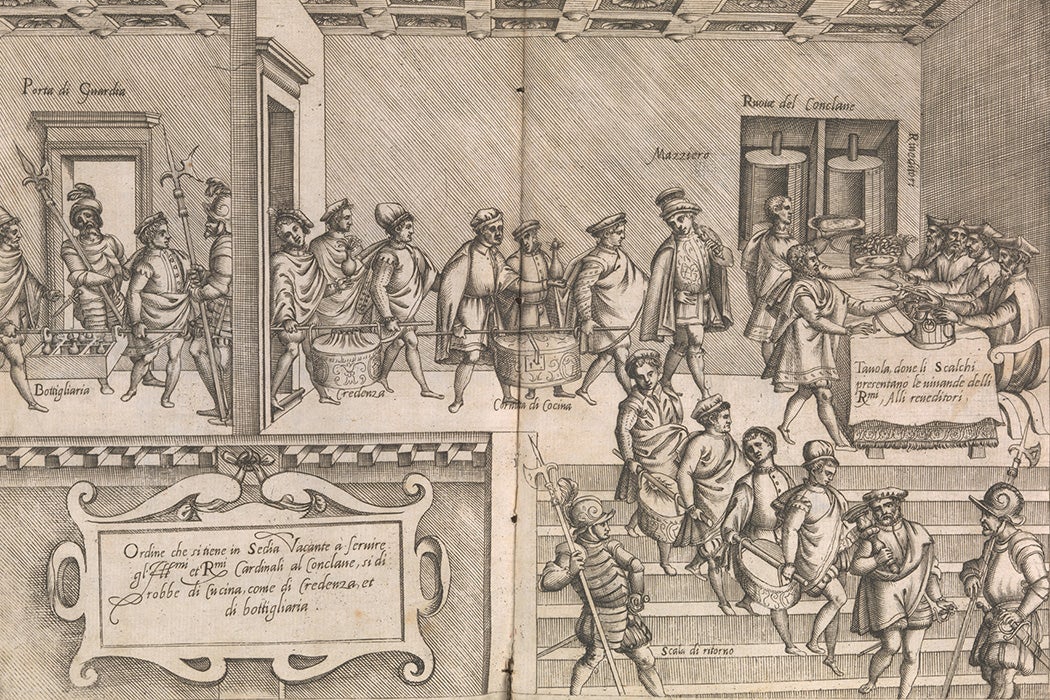 Porta di Guardia
Ruoue del Conclaue
Mazziero
Riueditori
Bottigliaria
Credenza
Cornuta di Cocina
Tauola, doue li Scalchi
presentano le uiuande delli
Rmi, Alli reueditori,
Ordine che si tiene in Sedia Vacante a seruire
gl'Illmi et Rmi Cardinali al Conclaue, si di
robbe di Cucina, come di Credenza, et
di bottigliaria.
Scala di ritorno